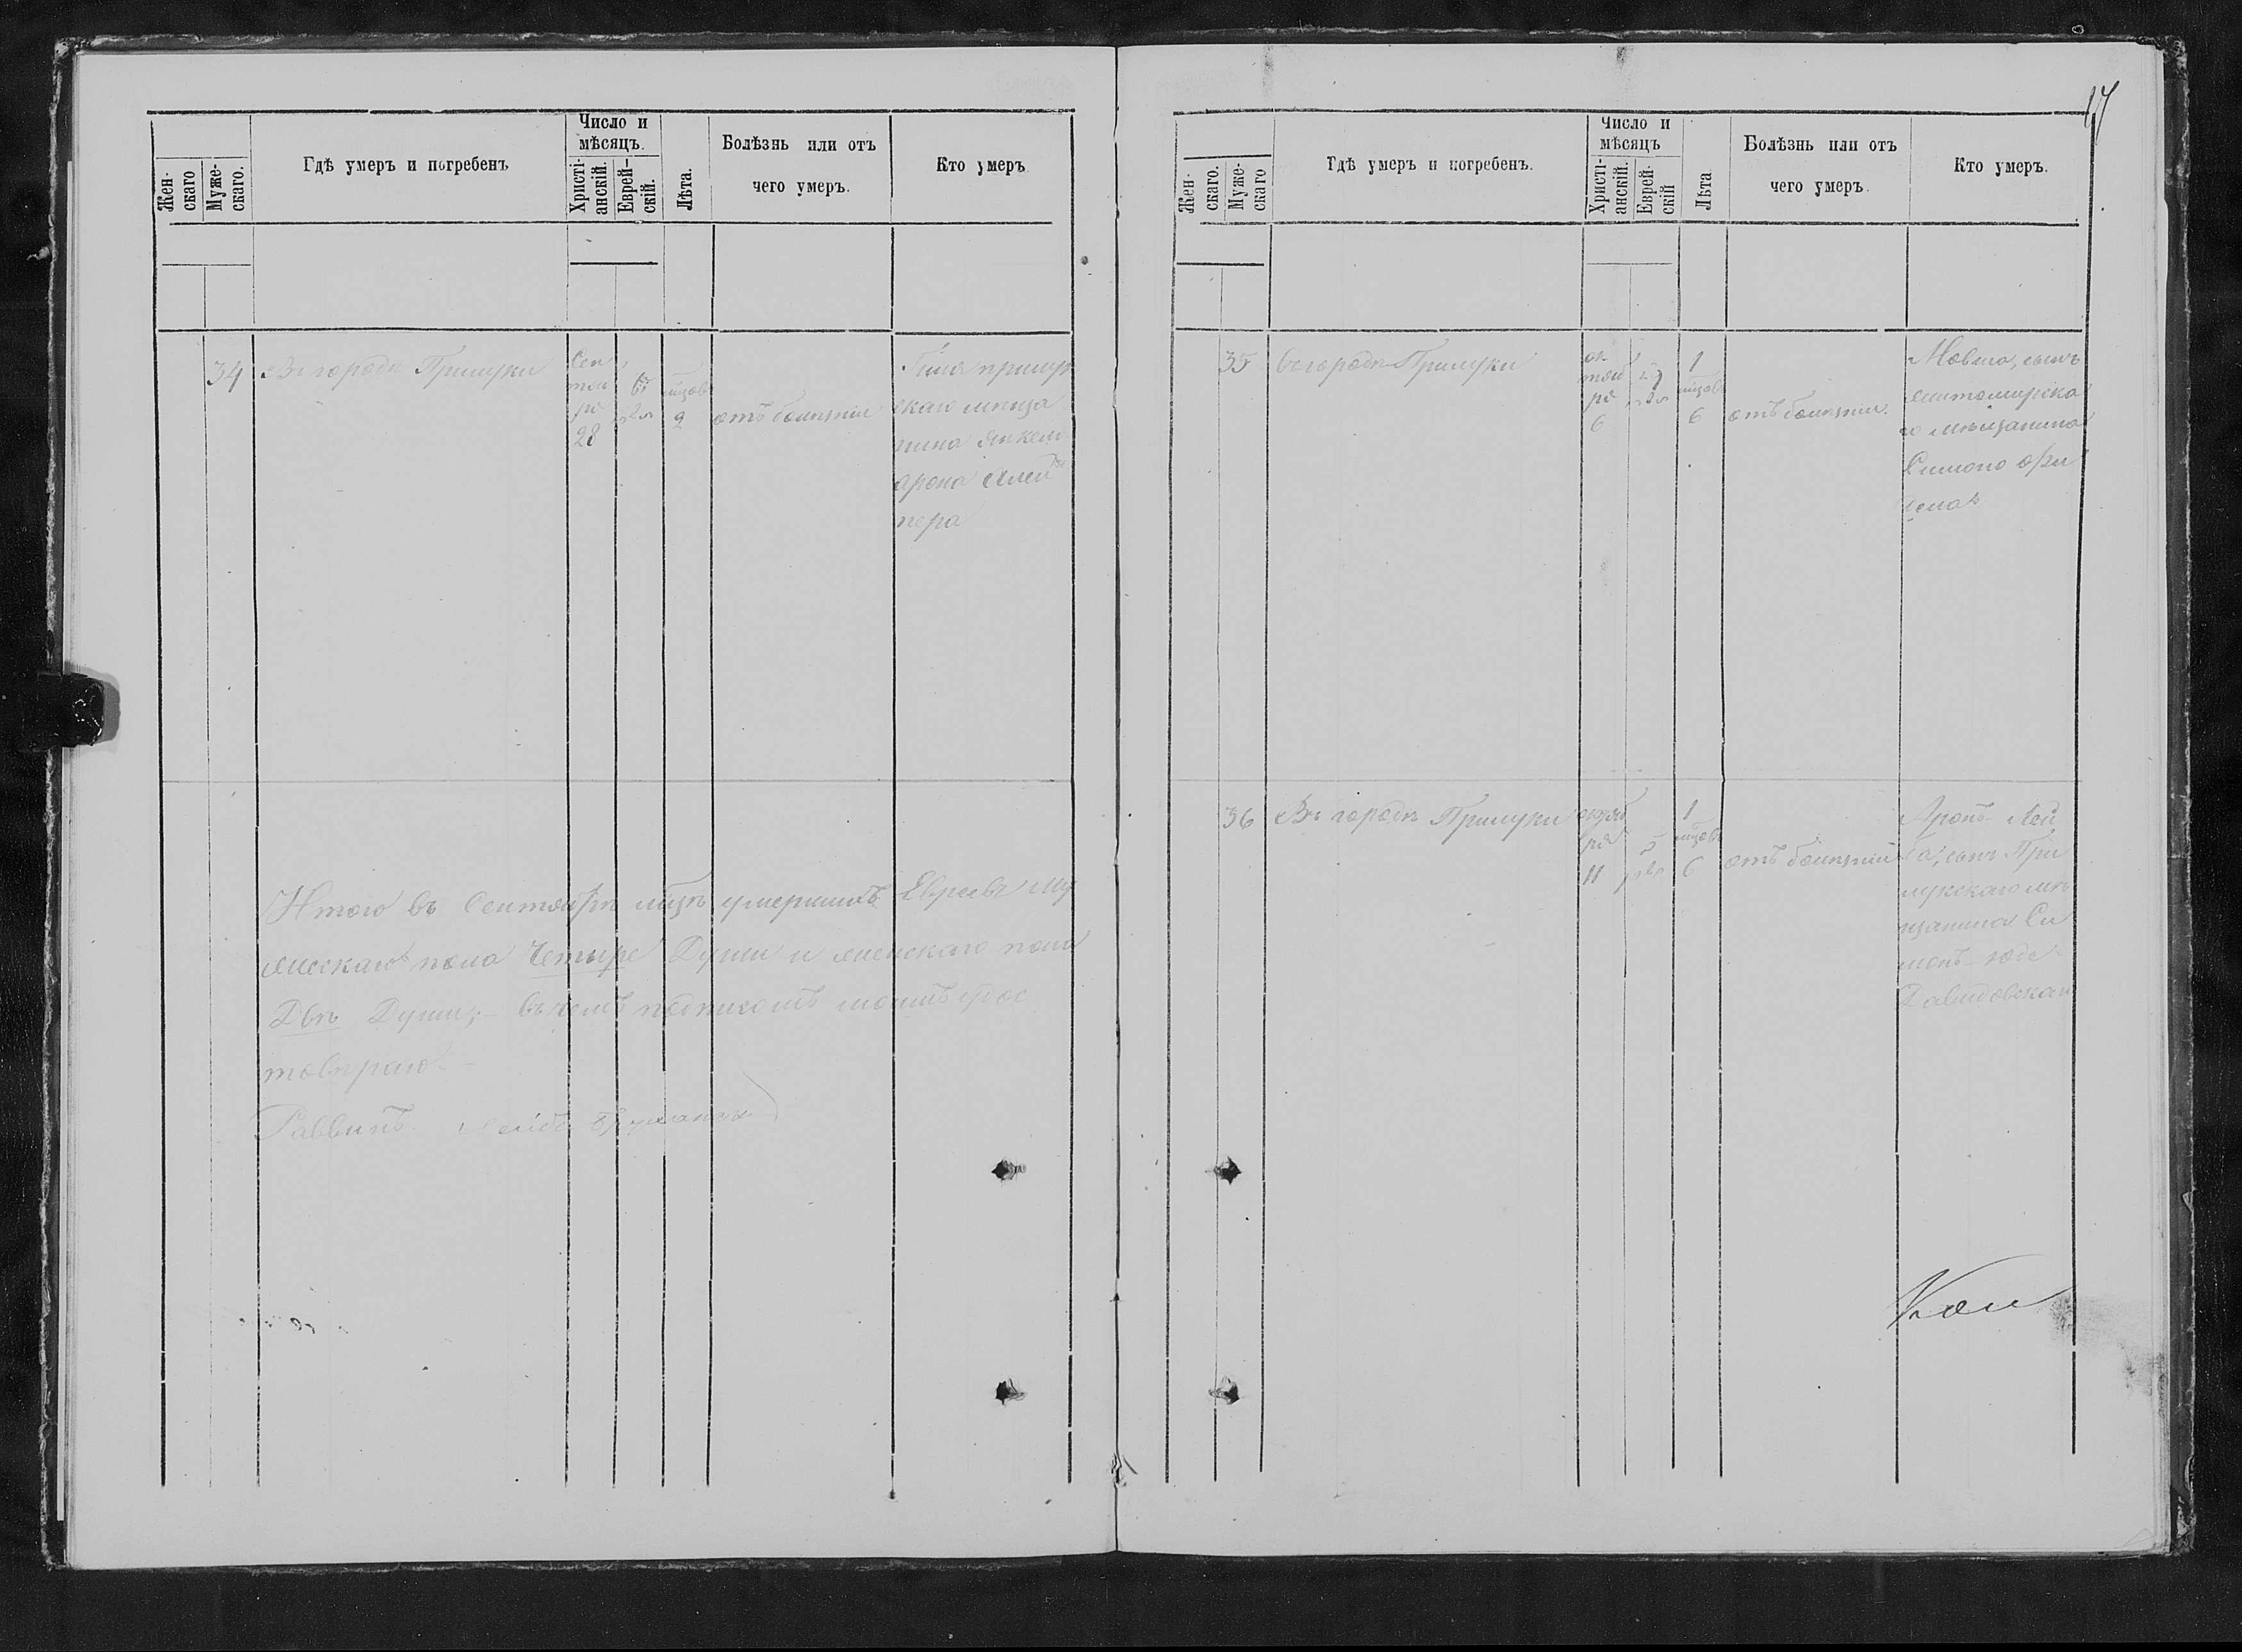 Жен-
скаго
Муже-
скаго.
Гдѣ умеръ и погребенъ
Число и
мѣсяцъ.
Христі-
анскій.
Еврей-
скій.
Лѣта.
Болѣзнь или отъ
чего умеръ.
Кто умеръ
34
Въ городѣ Прилуки
Сен
тяб
ря
28
мцовъ
2
отъ болѣзни
прилук
скаго мѣща
нина Янкель
арона
пера
Итого въ Сентябрѣ мцѣ умершихъ Евреевъ му
жескаго пола Четыре Души и женскаго пола
Двѣ Души, въ чемъ подписомъ моимъ удос
товѣряю
Раввинъ
17
Жен-
скаго.
Муже-
скаго
Гдѣ умеръ и погребенъ.
Число и
мѣсяцъ
Христі-
анскій.
Еврей-
скій
Лѣта
Болѣзнь или отъ
чего умеръ.
Кто умеръ.
35
Въ городѣ Прилуки
ок
тяб
ря
6
1
мцовъ
6
отъ болѣзни
Мовша, сынъ
житомирска
го мѣщанина
36
Въ городѣ Прилуки
октяб
ря
11
5
1
мцовъ
6
отъ болѣзни
Аронъ Лей
ба, сынъ При
лукскаго мѣ
щанина Си
монъ юде
Давидовскаго